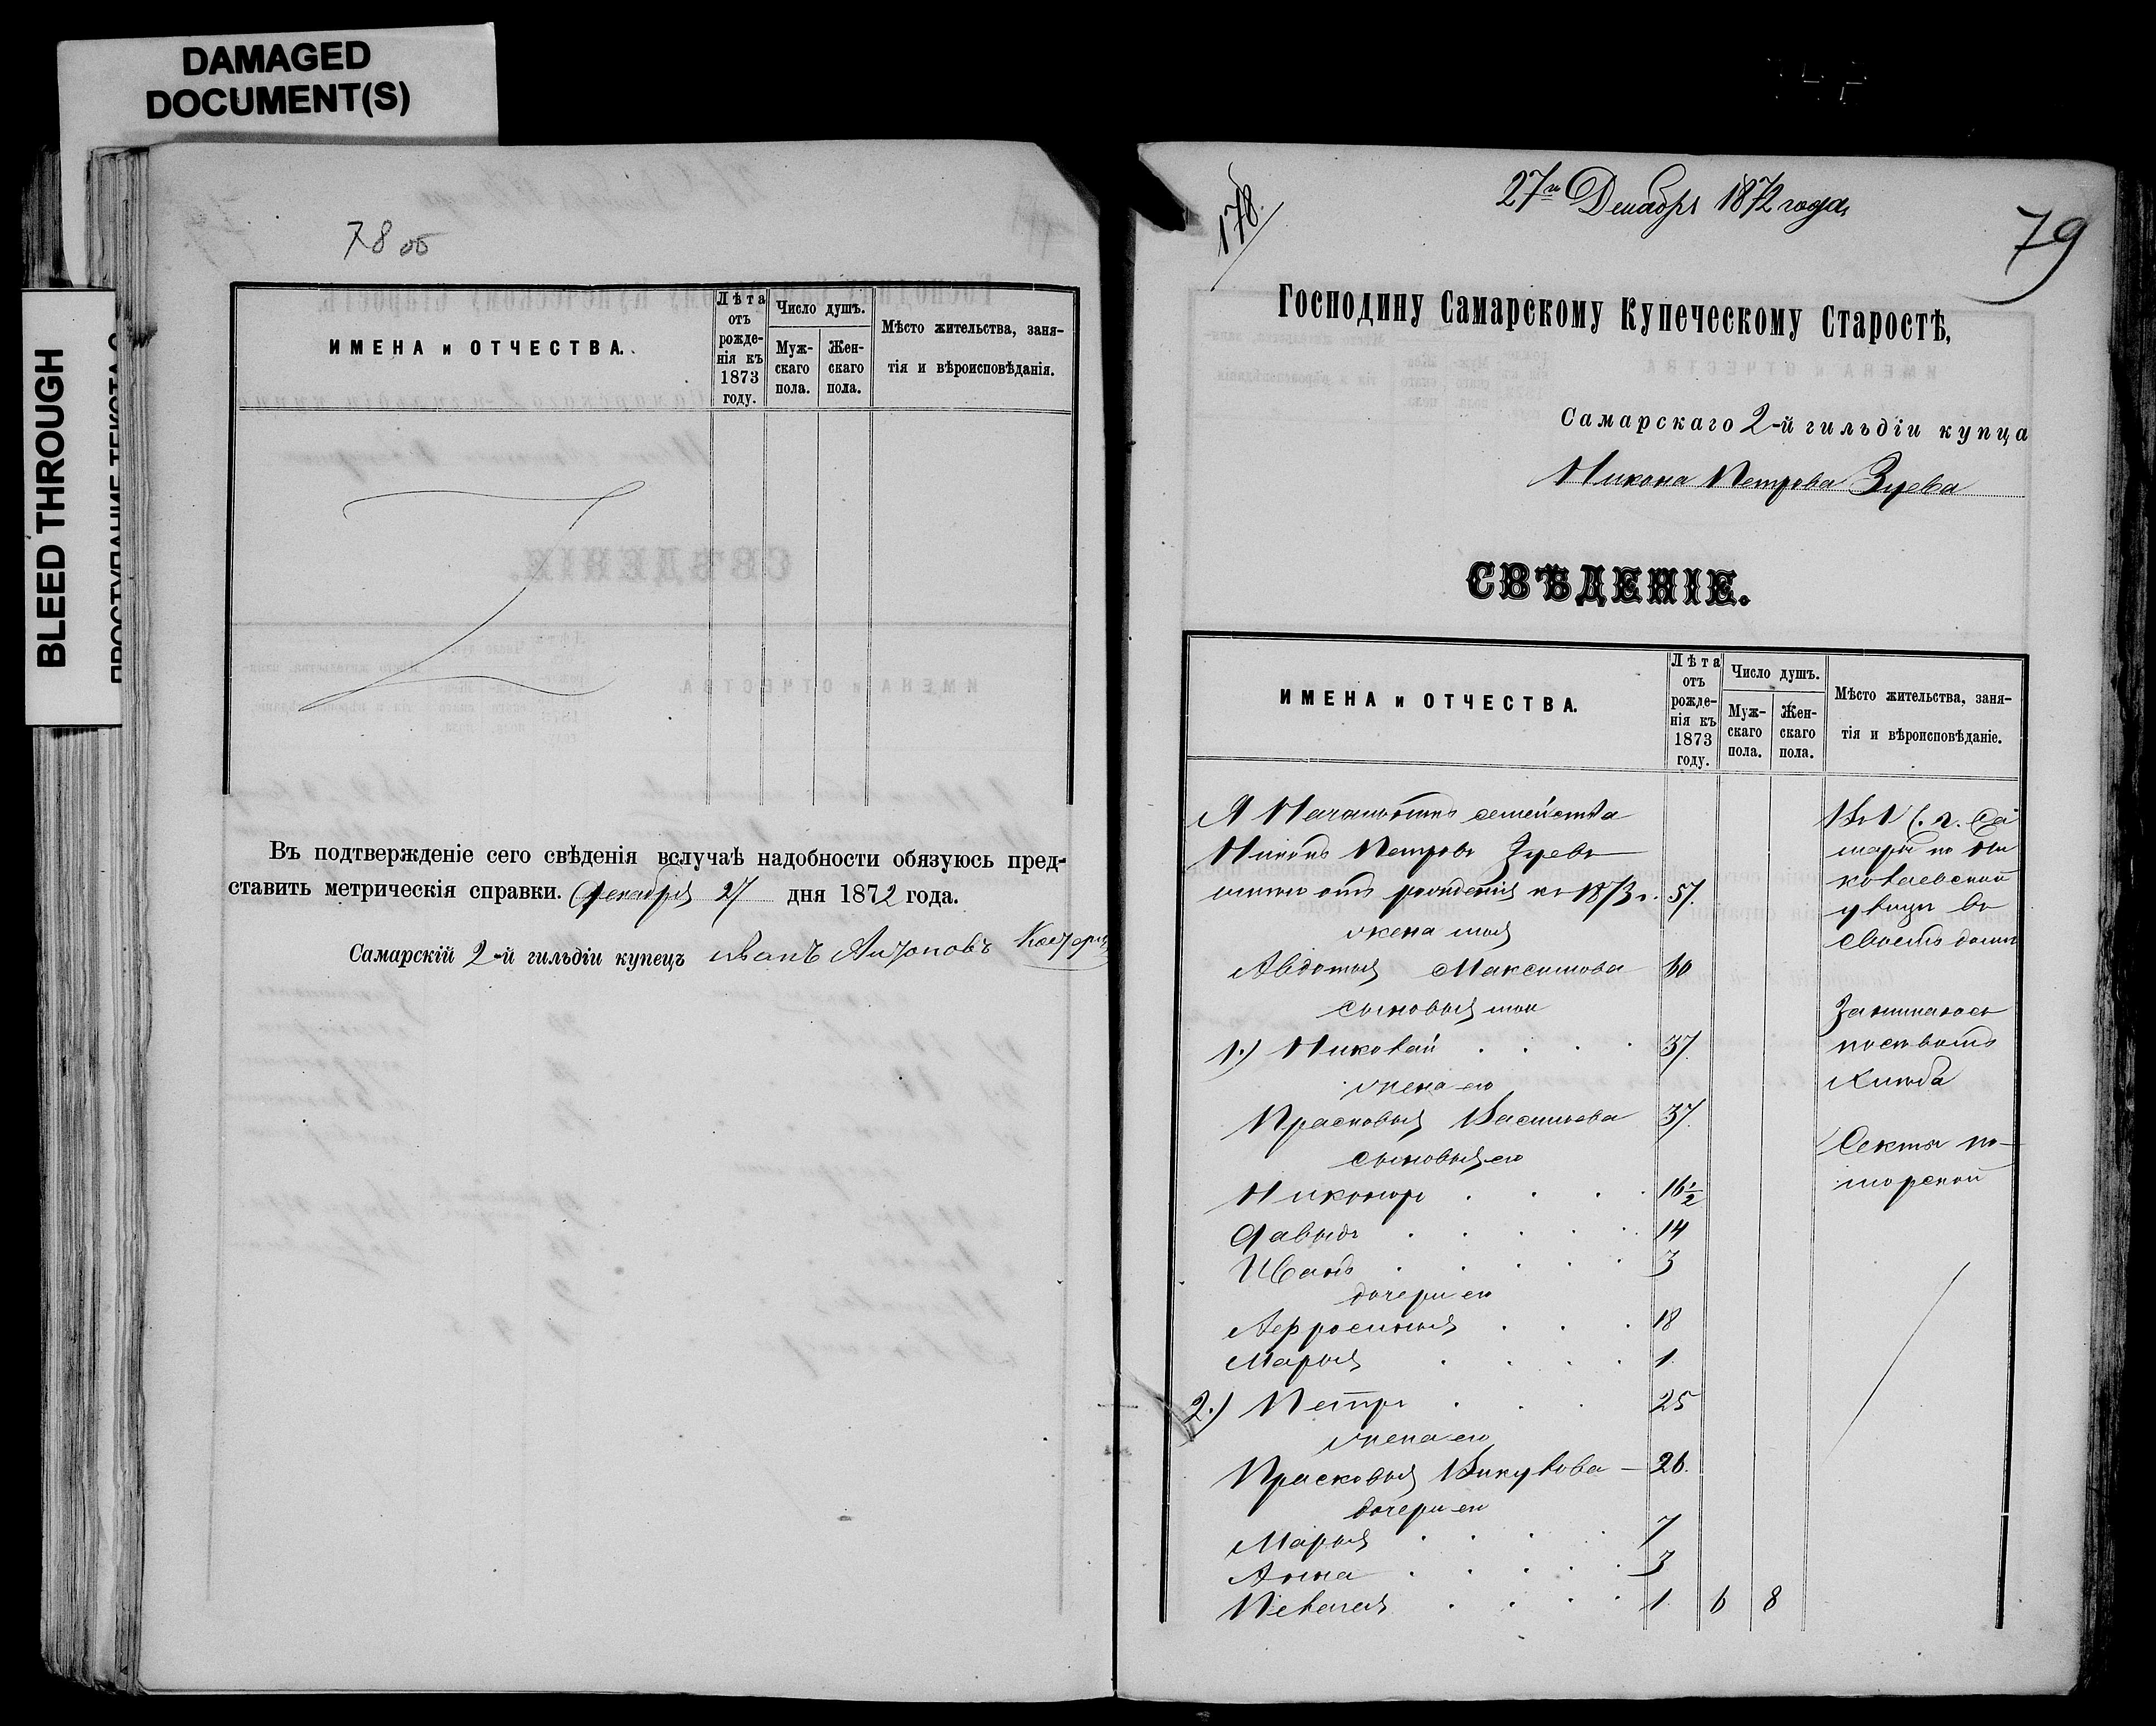 DAMAGED
DOCUMENT(S)
BLEED THROUGH
ПРОСТУПАНИЕ ТЕКСТА С
78 об
ИМЕНА и ОТЧЕСТВА.
Лѣта
отъ
рожде-
нія къ
1873
году.
Число душъ.
Муж-
скаго
пола.
Жен-
скаго
пола.
Мѣсто жительства, заня-
тія и вѣроисповѣданія.
Въ подтвержденіе сего свѣденія вслучаѣ надобности обязуюсь пред-
ставить метрическія справки. Декабря 27 дня 1872 года.
Самарскій 2-й гильдіи купецъ Иванъ Антоновъ
178.
27го Декабря 1872 года,
79
Господину Самарскому Купеческому Старостѣ,
Самарскаго 2-й гильдіи купца
Никона Петрова Зуева
СВѢДЕНІЕ.
ИМЕНА и ОТЧЕСТВА.
Лѣта
отъ
рожде-
нія къ
1873
году.
Число душъ.
Муж-
скаго
пола.
Жен-
скаго
пола.
Мѣсто жительства, заня-
тія и вѣроисповѣданіе.
Я Начальникъ семейства
Никонъ Петровъ Зуевъ
отъ рожденія къ 1873 г. 57.
жена моя
Авдотья Максимова 60
сыновья мои
1.) Николай 37.
жена его
Прасковья Васильева 37.
сыновья его
Никоноръ 16 1/2
Давыдъ 14
Иванъ 3
дочери его
Афросинья 18
Марья 1.
2.) Петръ 25
жена его
Прасковья Викулова — 26.
дочери его
Марья 7
Анна 3
Пелагея 1. 6 8
г. Са
мары по Ни
колаевской
улицы въ
своемъ доми
Занимаюсь
посевомъ
хлиба
Секты по-
морской